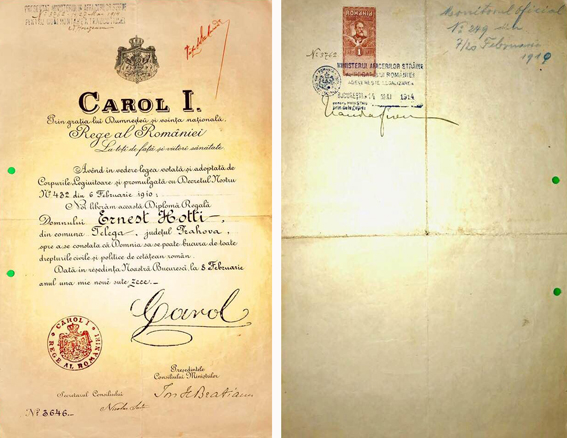 PREZENTAT MINISTERULUI AFACERILOR STRĂINE
PENTRU
CAROL I.
Prin grația lui Dumnedeu și voința națională,
Rege al României
La toți de față și viitori sănătate
Având în vedere legea votată și adoptată de
Corpurile Legiuitoare și promulgată cu Decretul Nostru
Nº 432 din 6 Februarie 1910;
Noi liberăm această Diplomă Regală
Domnului Ernest Hotti
din comuna Telega, județul Prahova,
spre a se constata că Domnia sa se poate bucura de toate
drepturile civile și politice de cetățean român.
Dată în reședința Noastră București, la 8 Februarie
anul una mie nouă sute zece.
Carol
CAROL I
REGE AL ROMÂNIEI
Președintele
Consiliului Miniștrilor
Secretarul Consiliului
Nº 3646
ROMÂNIA
1
MINISTERUL AFACERILOR STRĂINE
AL REGATULUI ROMÂNIEI
BUCUREȘTI 1914
Monitorul Oficial
Nº 249 din
Februarie